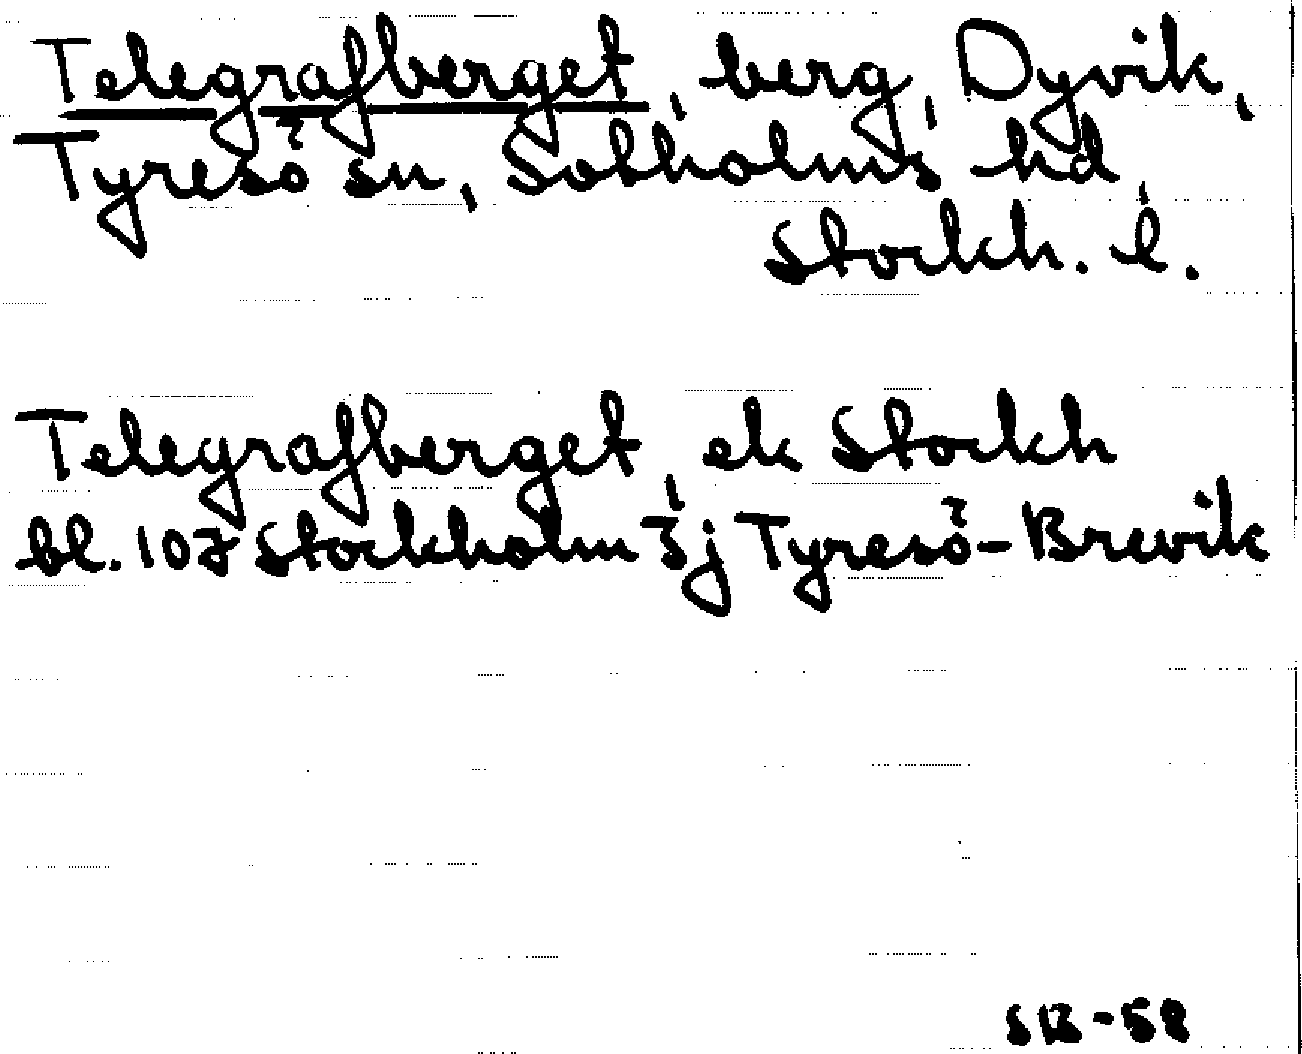 Telegrafberget, berg, Dyvik,
Tyresö sn, Sotholms hd,
Stockh. l.
Telegrafberget, ek Stockh
bl. 107 Stockholm SJ Tyresö-Brevik
SB-58